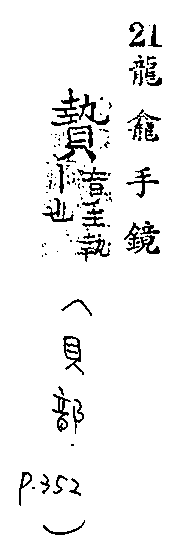 21龍龕手鏡
贄音至執
丨也
(貝部
p.352)